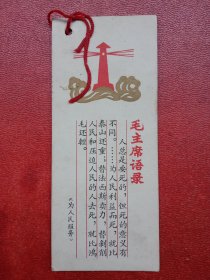 毛主席语录
人总是要死的，但死的意义有
不同。……为人民利益而死，就比
泰山还重；替法西斯卖力，替剥削
人民和压迫人民的人去死，就比鸿
毛还轻。
《为人民服务》